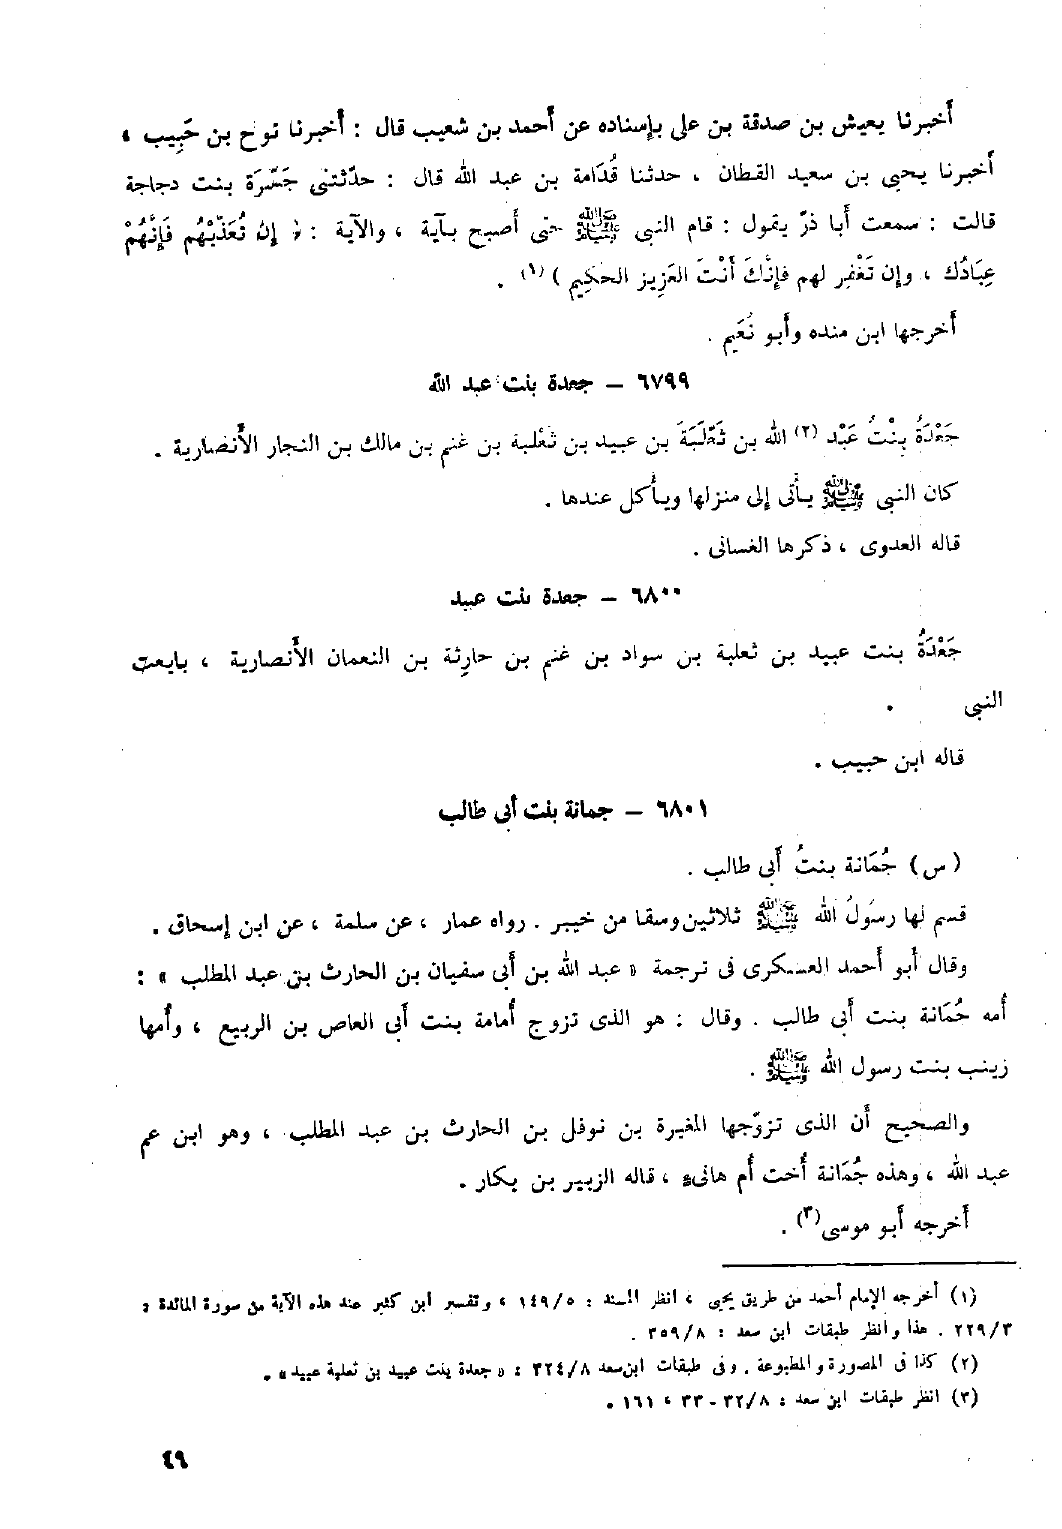 أخبرنا يعيش بن صدقة بن على بإسناده عن أحمد بن شعيب قال : أخبرنا نوح بن حَبِيب ،
أخبرنا يحيى بن سعيد القطان ، حدثنا قُدَامة بن عبد الله قال : حدّثتنى جَسْرَة بنت دجاجة
قالت : سمعت أبا ذرّ يقول : قام النبى ﷺ حتى أصبح بآية ، والآية : ﴿ إِن تُعَذِّبْهُم فَإِنَّهُمْ
عِبَادُك ، وإن تَغْفِر لهم فإِنَّكَ أَنْتَ العَزِيز الحكِيم ) (١) .
أخرجها ابن منده وأبو نُعَيم .
٦٧٩٩ – جعدة بنت عبد الله
جَعْدَةُ بِنْتُ عَبْد (٢) الله بن ثَعْلَبَةَ بن عبيد بن ثعْلبة بن غنم بن مالك بن النجار الأنصارية .
كان النبى ﷺ يأتى إلى منزلها ويأكل عندها .
قاله العدوى ، ذكرها الغسانى .
٦٨٠٠ – جعدة بنت عبيد
جَعْدَةُ بنت عبيد بن ثعلبة بن سواد بن غنم بن حارِثة بن النعمان الأنصارية ، بايعت
النبى .
قاله ابن حبيب .
٦٨٠١ – جمانة بنت أبى طالب
( س ) جُمَانة بنتُ أبى طالب .
قسم لها رسَولُ الله ﷺ ثلاثين وسقا من خيبر . رواه عمار ، عن سلمة ، عن ابن إسحاق .
وقال أبو أحمد العسكرى فى ترجمة « عبد الله بن أبى سفيان بن الحارث بن عبد المطلب » :
أمه جُمَانة بنت أبى طالب . وقال : هو الذى تزوج أمامة بنت أبى العاص بن الربيع ، وأمها
زينب بنت رسول الله ﷺ .
والصحيح أن الذى تزوّجها المغيرة بن نوفل بن الحارث بن عبد المطلب ، وهو ابن عم
عبد الله ، وهذه جُمَانة أخت أم هانىء ، قاله الزبير بن بكار .
أخرجه أبو موسى(٣) .
(١) أخرجه الإمام أحمد من طريق يحيى ، انظر المسند : ١٤٩/٥ ، وتفسير ابن كثير عند هذه الآية من سورة المائدة :
٢٢٩/٣ . هذا وانظر طبقات ابن سعد : ٣٥٩/٨ .
(٢) كذا فى المصورة والمطبوعة . وفى طبقات ابن سعد ٣٢٤/٨ : « جعدة بنت عبيد بن ثعلبة عبيد » .
(٣) انظر طبقات ابن سعد : ٣٢/٨ - ٣٣ ، ١٦١ .
٤٩